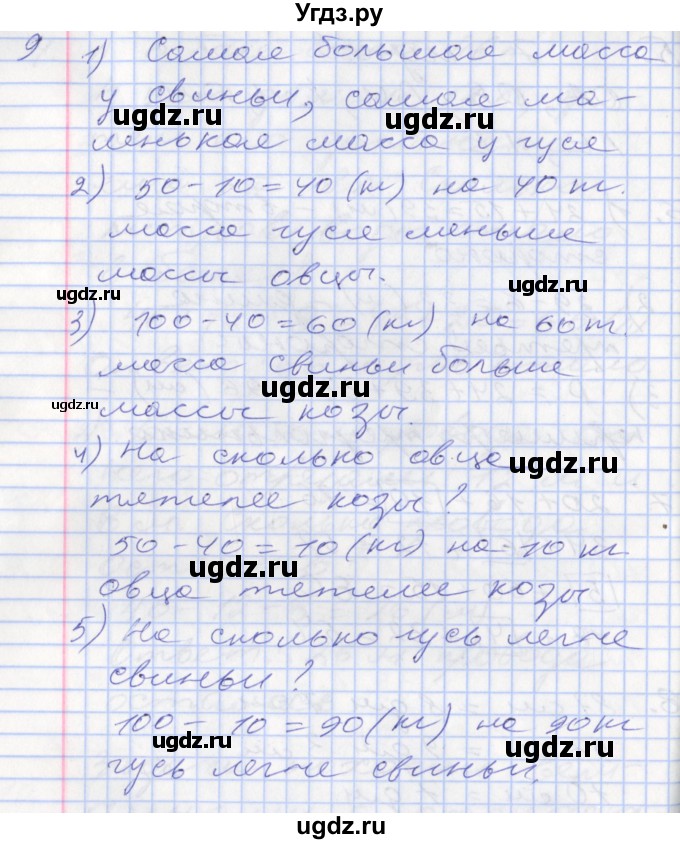 Угдз.ру
9 1) Самая большая масса
у свиньи, самая ма-
ленькая масса у гуся
2) 50-10=40 (кг) на 40 кг.
масса гуся меньше
массы овцы.
3) 100-40=60 (кг) на 60 кг.
масса свиньи больше
массы козы.
4) На сколько овца
тяжелее козы?
50-40=10 (кг) на 10 кг
овца тяжелее козы
5) На сколько гусь легче
свиньи?
100-10=90 (кг) на 90 кг
гусь легче свиньи.
ugdz.ru
ugdz.ru
ugdz.ru
ugdz.ru
ugdz.ru
ugdz.ru
ugdz.ru
ugdz.ru
ugdz.ru
ugdz.ru
ugdz.ru
ugdz.ru